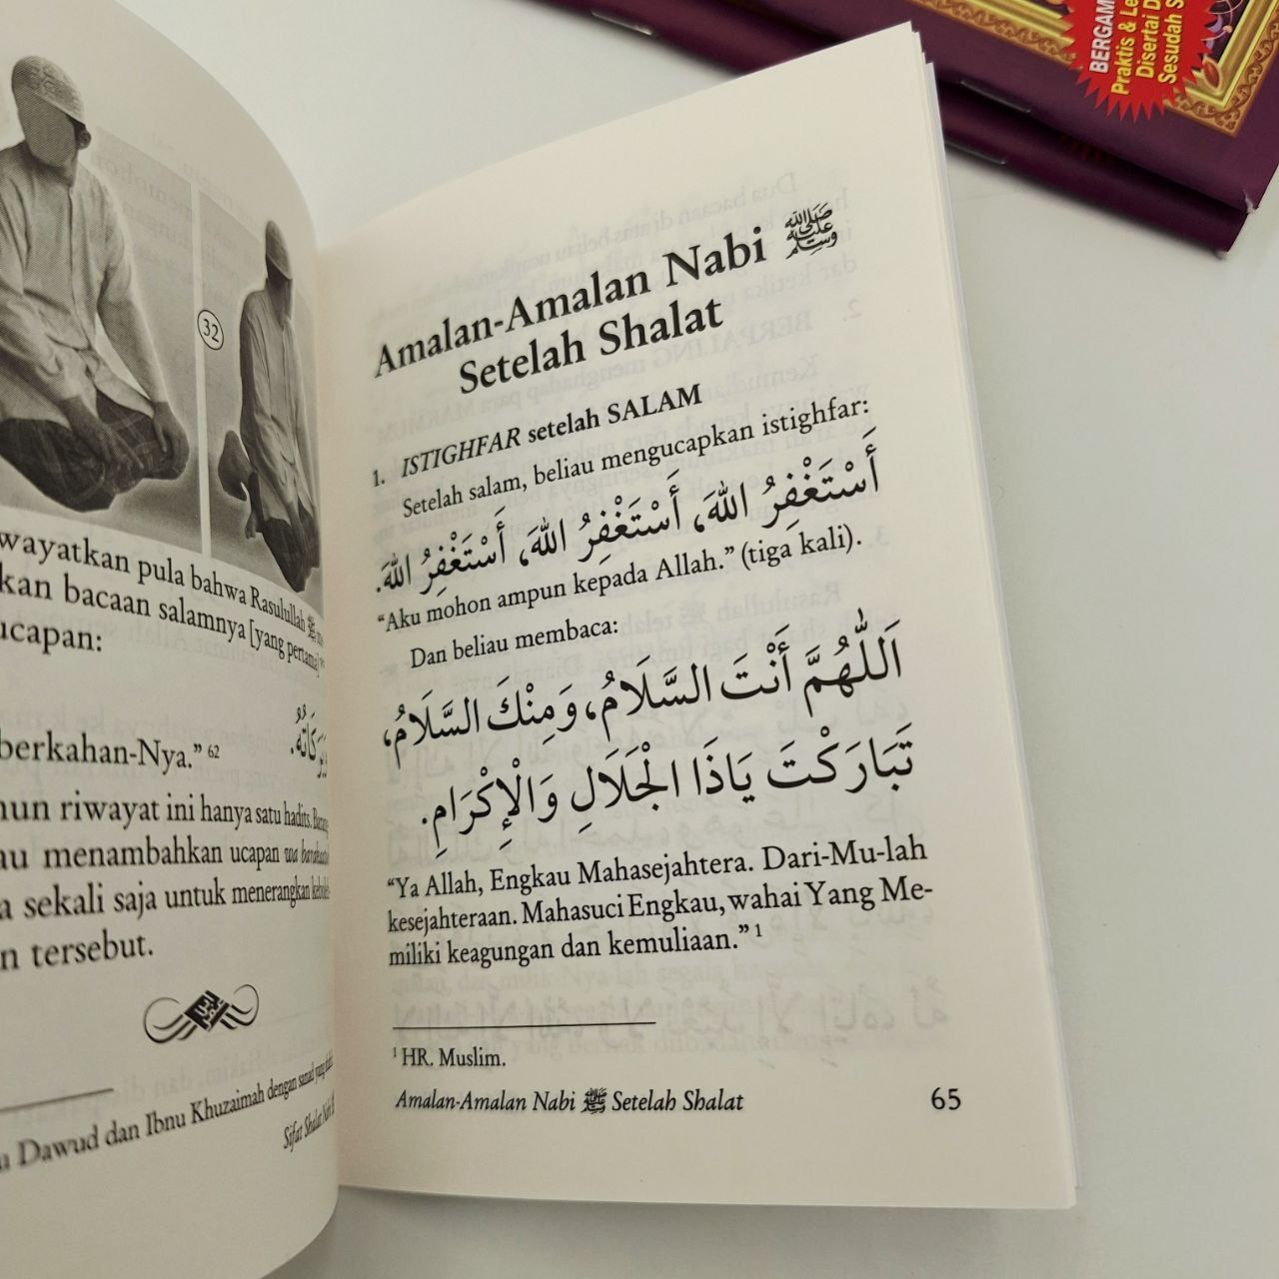 32
wayatkan pula bahwa Rasulullah ﷺ
kan bacaan salamnya [yang pertama]
ucapan:
berkahan-Nya.” 62
mun riwayat ini hanya satu hadits.
au menambahkan ucapan wa
a sekali saja untuk menerangkan
n tersebut.
Dawud dan Ibnu Khuzaimah dengan sanad yang
Sifat Shalat Nabi
Amalan-Amalan Nabi ﷺ
Setelah Shalat
1. ISTIGHFAR setelah SALAM
Setelah salam, beliau mengucapkan istighfar:
أَسْتَغْفِرُ اللهَ، أَسْتَغْفِرُ اللهَ، أَسْتَغْفِرُ اللهَ.
“Aku mohon ampun kepada Allah.” (tiga kali).
Dan beliau membaca:
اَللّٰهُمَّ أَنْتَ السَّلَامُ، وَمِنْكَ السَّلَامُ،
تَبَارَكْتَ يَاذَا الْجَلَالِ وَالْإِكْرَامِ.
“Ya Allah, Engkau Mahasejahtera. Dari-Mu-lah
kesejahteraan. Mahasuci Engkau, wahai Yang Me-
miliki keagungan dan kemuliaan.” 1
1 HR. Muslim.
Amalan-Amalan Nabi ﷺ Setelah Shalat 65
BERGAM
Praktis & Le
Disertai D
Sesudah S